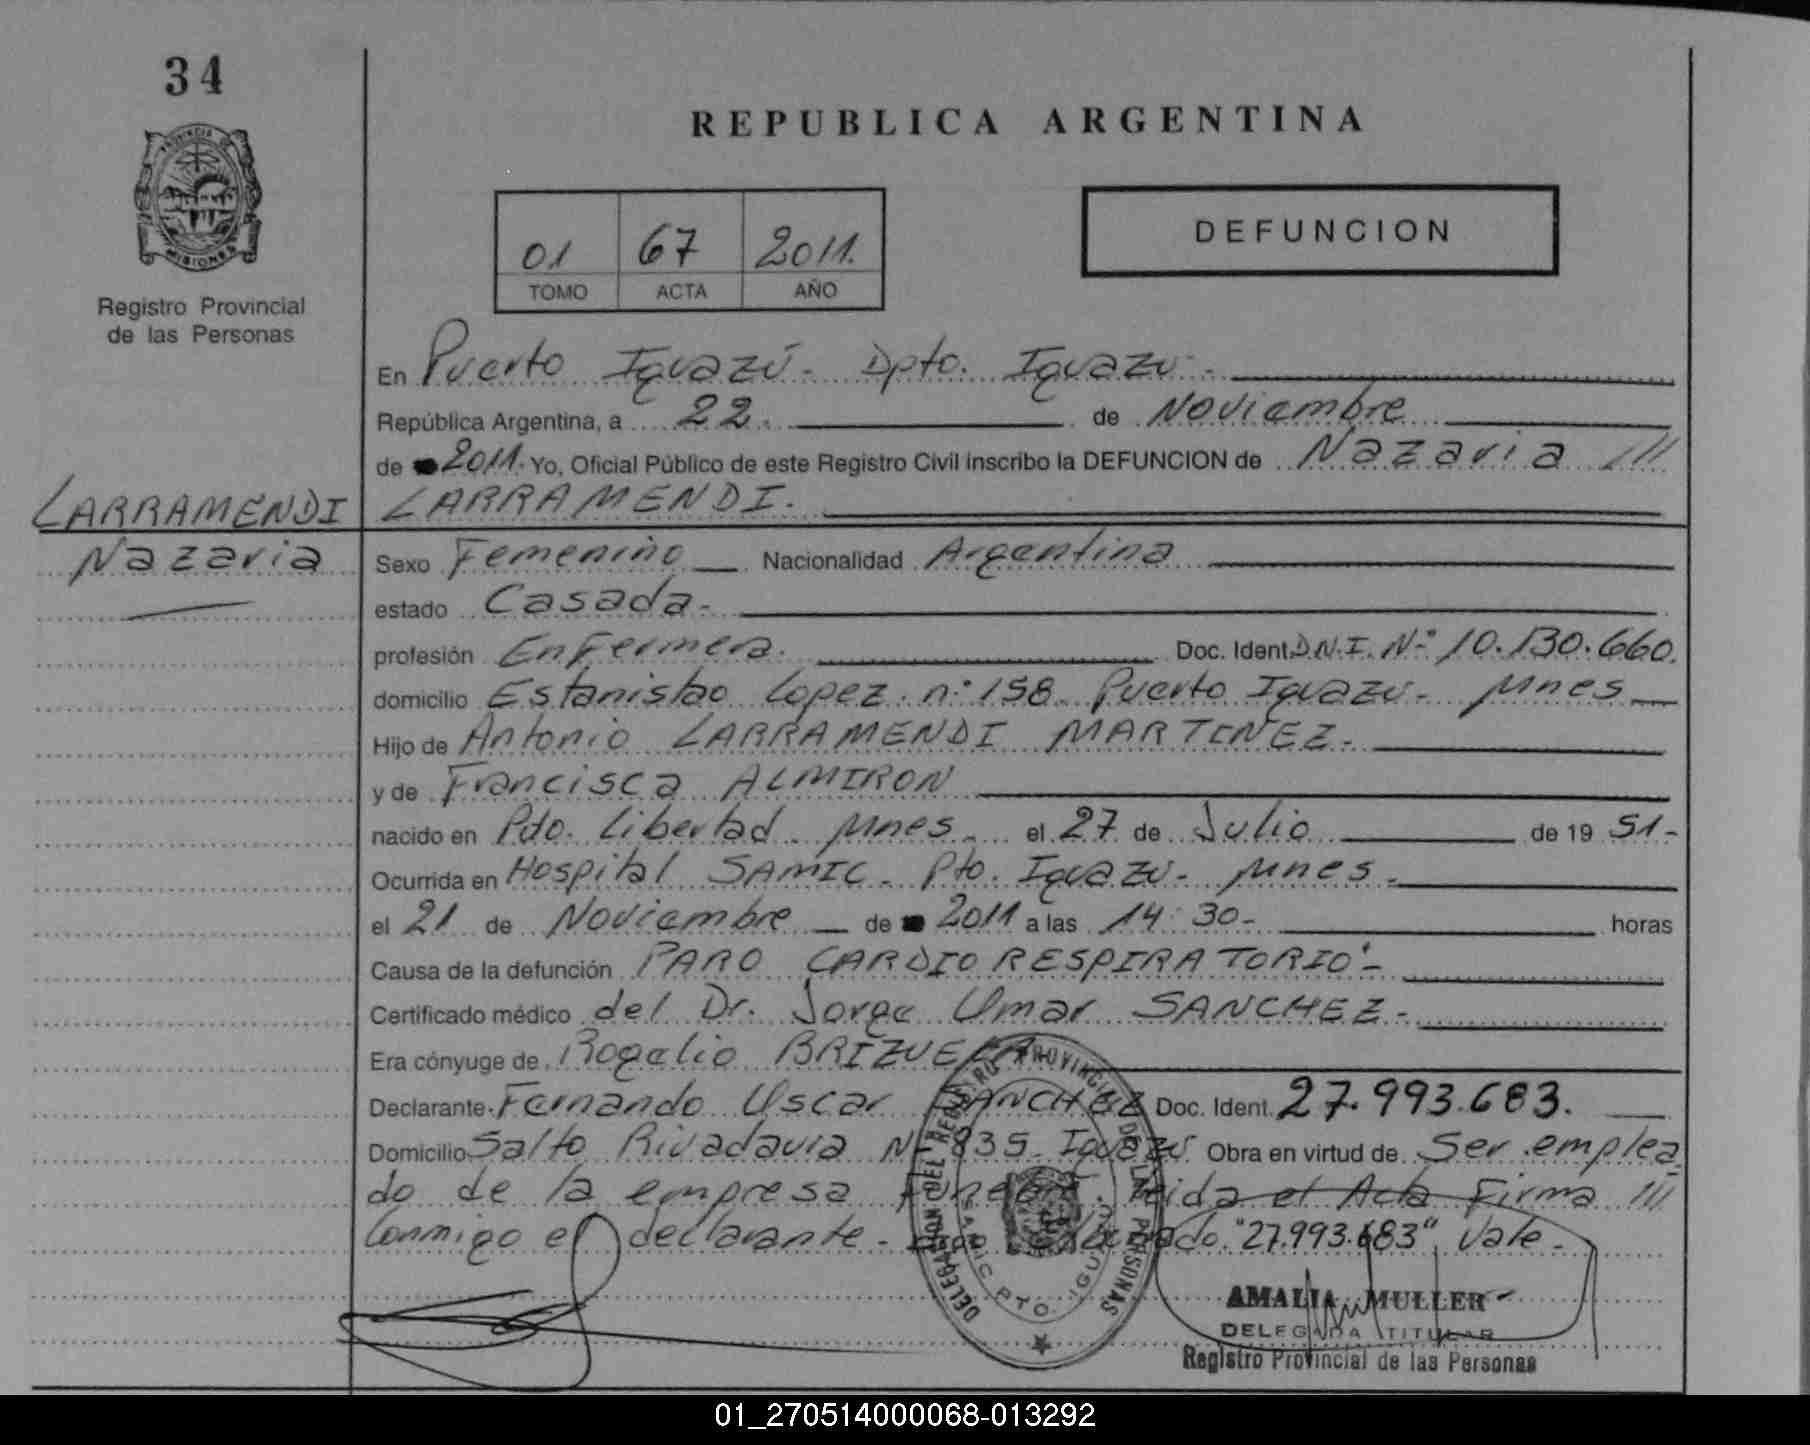 34
REPUBLICA ARGENTINA
PROVINCIA DE
MISIONES
Registro Provincial
de las Personas
DEFUNCION
01 67 2011.
TOMO ACTA AÑO
En Puerto Iguazú - Dpto. Iguazú -
República Argentina, a 22. de Noviembre
de 2011. Yo, Oficial Público de este Registro Civil inscribo la DEFUNCION de Nazaria ///
LARRAMENDI LARRAMENDI.
Nazaria Sexo Femenino Nacionalidad Argentina
estado Casada -
profesión Enfermera. Doc. Ident. D.N.I. Nº 10.130.660.
domicilio Estanislao Lopez. nº 158. Puerto Iguazú - Mnes
Hijo de Antonio LARRAMENDI MARTINEZ.
y de Francisca ALMIRON
nacido en Pto. Libertad. Mnes. el 27 de Julio de 19 51-
Ocurrida en Hospital SAMIC - Pto. Iguazú - Mnes.
el 21 de Noviembre de 2011 a las 14:30- horas
Causa de la defunción PARO CARDIO RESPIRATORIO -
Certificado médico del Dr. Jorge Omar SANCHEZ -
Era cónyuge de Rogelio BRIZUELA.
Declarante. Fernando Oscar SANCHEZ Doc. Ident. 27.993.683.
Domicilio Salto Rivadavia Nº 835 Iguazú Obra en virtud de Ser emplea
do de la empresa Funebre. Leida el Acta Firma ///
Conmigo el declarante - "27.993.683" Vale.
DELEGACION DEL REGISTRO PROVINCIAL DE LAS PERSONAS
PTO. IGUAZU
AMALIA MULLER
DELEGADA TITULAR
Registro Provincial de las Personas
01_270514000068-013292